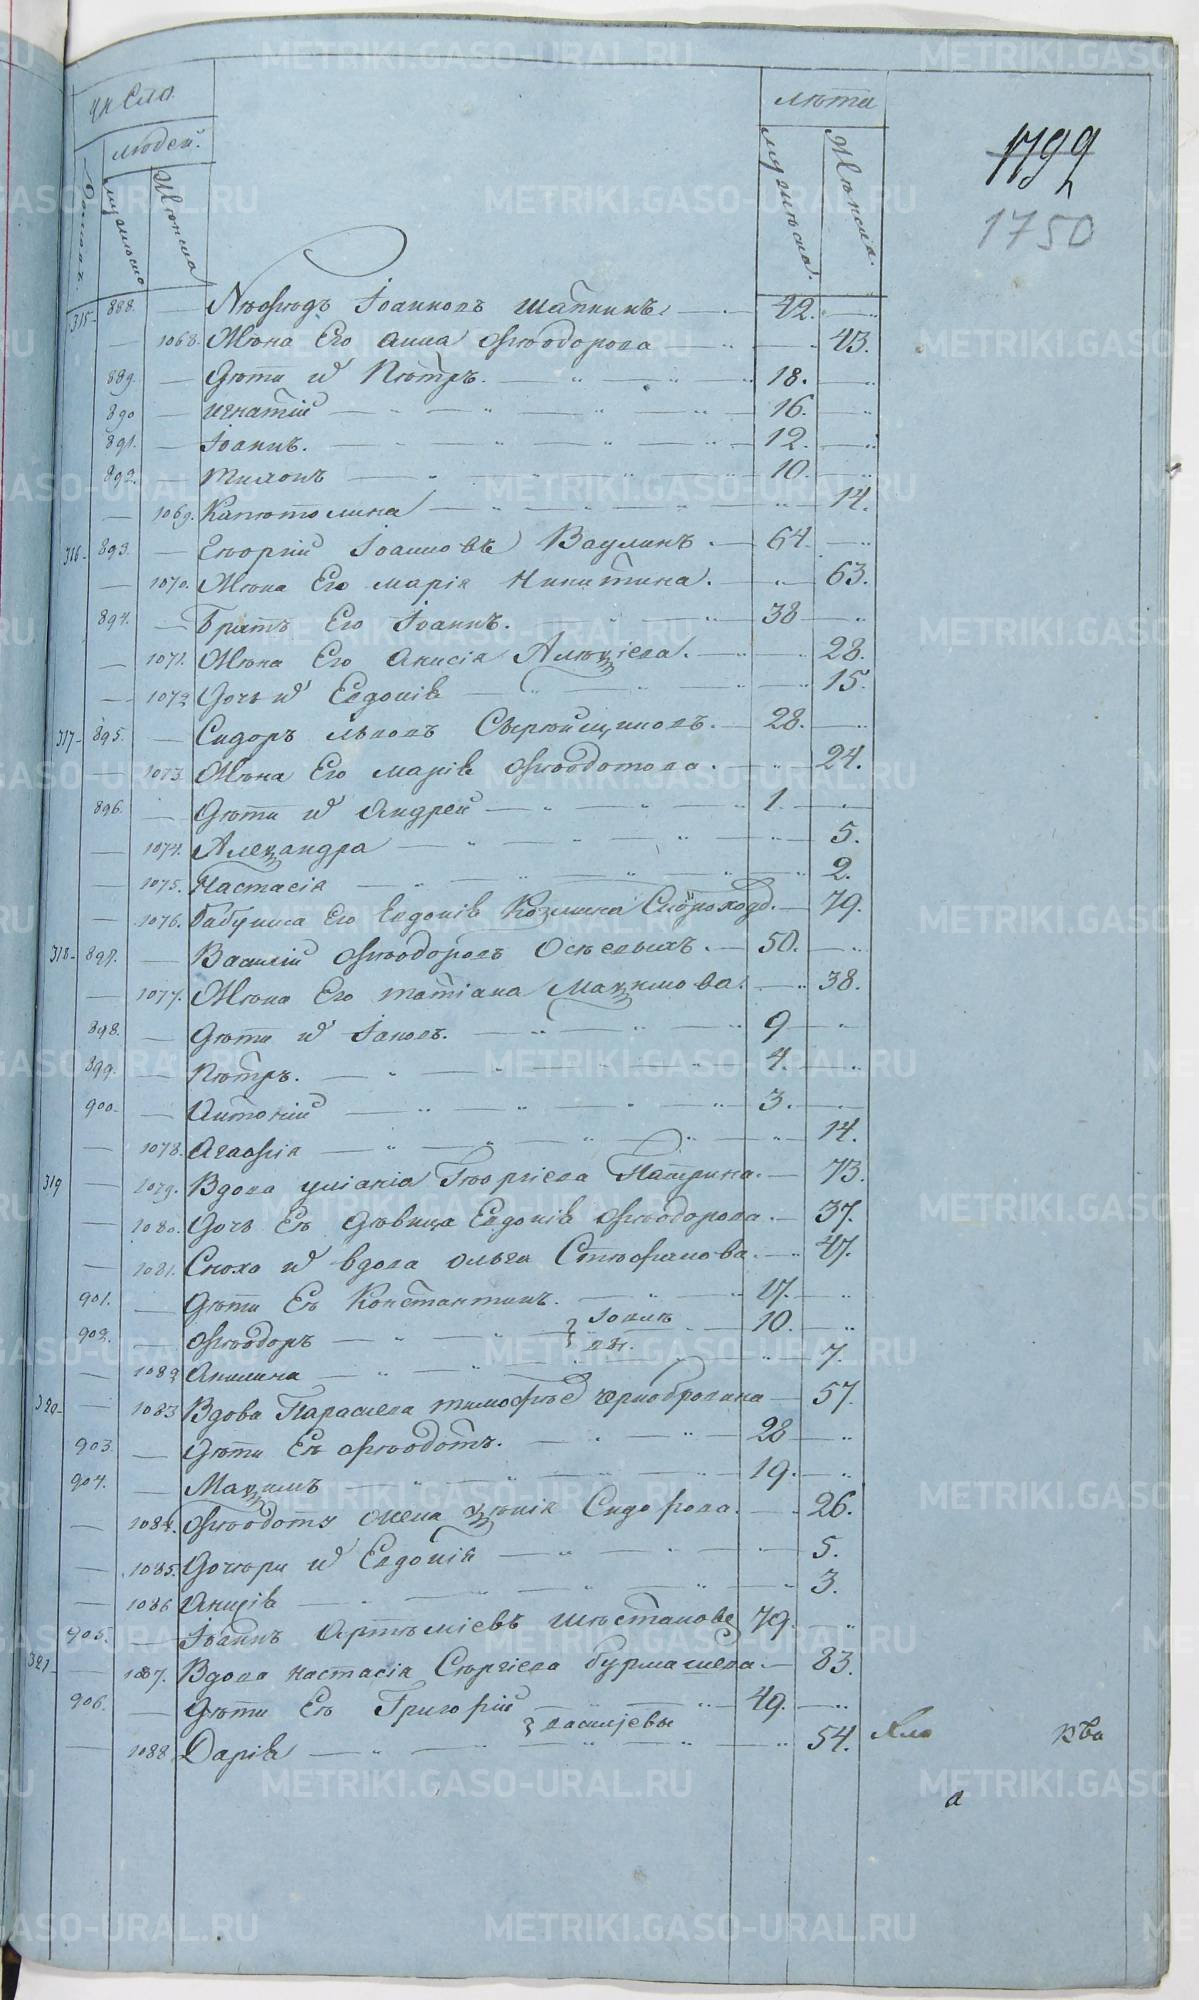 число
лѣта
людей.
мужеска
Женска
мужеска.
Женска.
1792
1750
315 888. Меѳодъ Іоанновъ Шапкинъ 42.
1068. Жена Его Анна Ѳеодорова 43.
889. Дѣти их Петръ. 18.
890 Игнатій 16.
891. Іоаннъ. 12.
892. Тихонъ 10.
1069. Капетолина 14.
316 893. Георгій Іоанновъ Ваулинъ. 64.
1070. Жена Его Марія Никитина. 63.
894. Братъ Его Іоаннъ. 38
1071. Жена Его Анисія Алекѣева. 28.
1072 Дочь их Евдокія 15.
317 895. Сидоръ Львовъ 28.
1073. Жена Его Марія Ѳеодотова. 24.
896. Дѣти их Андрей 1.
1074. Александра 5.
1075. Настасія 2.
1076. Бабушка Его Евдокія Козмина Скороход. 79.
318 897. Василій Ѳеодоровъ Осѣевыхъ. 50.
1077. Жена Его Татіана Максимова. 38.
898. Дѣти их Іаковъ. 9
899. Петръ. 4.
900. Антоній 3.
1078. Агафія 14.
319 1079. Вдова Уліанія Георгіева Патрина. 73.
1080. Дочь Ея Дѣвица Евдокія Ѳеодорова. 37.
1081. Сноха их вдова Ольга Стефанова. 47.
901. Дѣти Ея Константинъ. 17.
902. Ѳеодоръ 10.
1082 Акилина 7.
320 1083 Вдова Параскева Тимофѣев Чернобровина 57.
903. Дѣти Ея Ѳеодотъ. 28
904. Максимъ 19.
1084. Ѳеодота жена Ксенія Сидорова. 26.
1085. Дочери их Евдокія 5.
1086 Анисія 3.
905. Іоаннъ Артеміевъ Шестаковъ 79.
321 1087. Вдова Настасія Сергіева Бурмашева. 83.
906. Дѣти Ея Григорій 49.
васильевы
1088 Дарія 54.